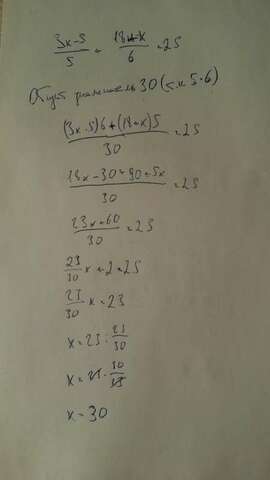 3x-5/5 + 18+x/6 = 25
Общ знаменатель 30 (т.к 5·6)
(3x-5)6+(18+x)5/30 = 25
18x-30+90+5x/30 = 25
23x+60/30 = 25
23/30 x + 2 = 25
23/30 x = 23
x = 23 : 23/30
x = 23 · 30/23
x = 30